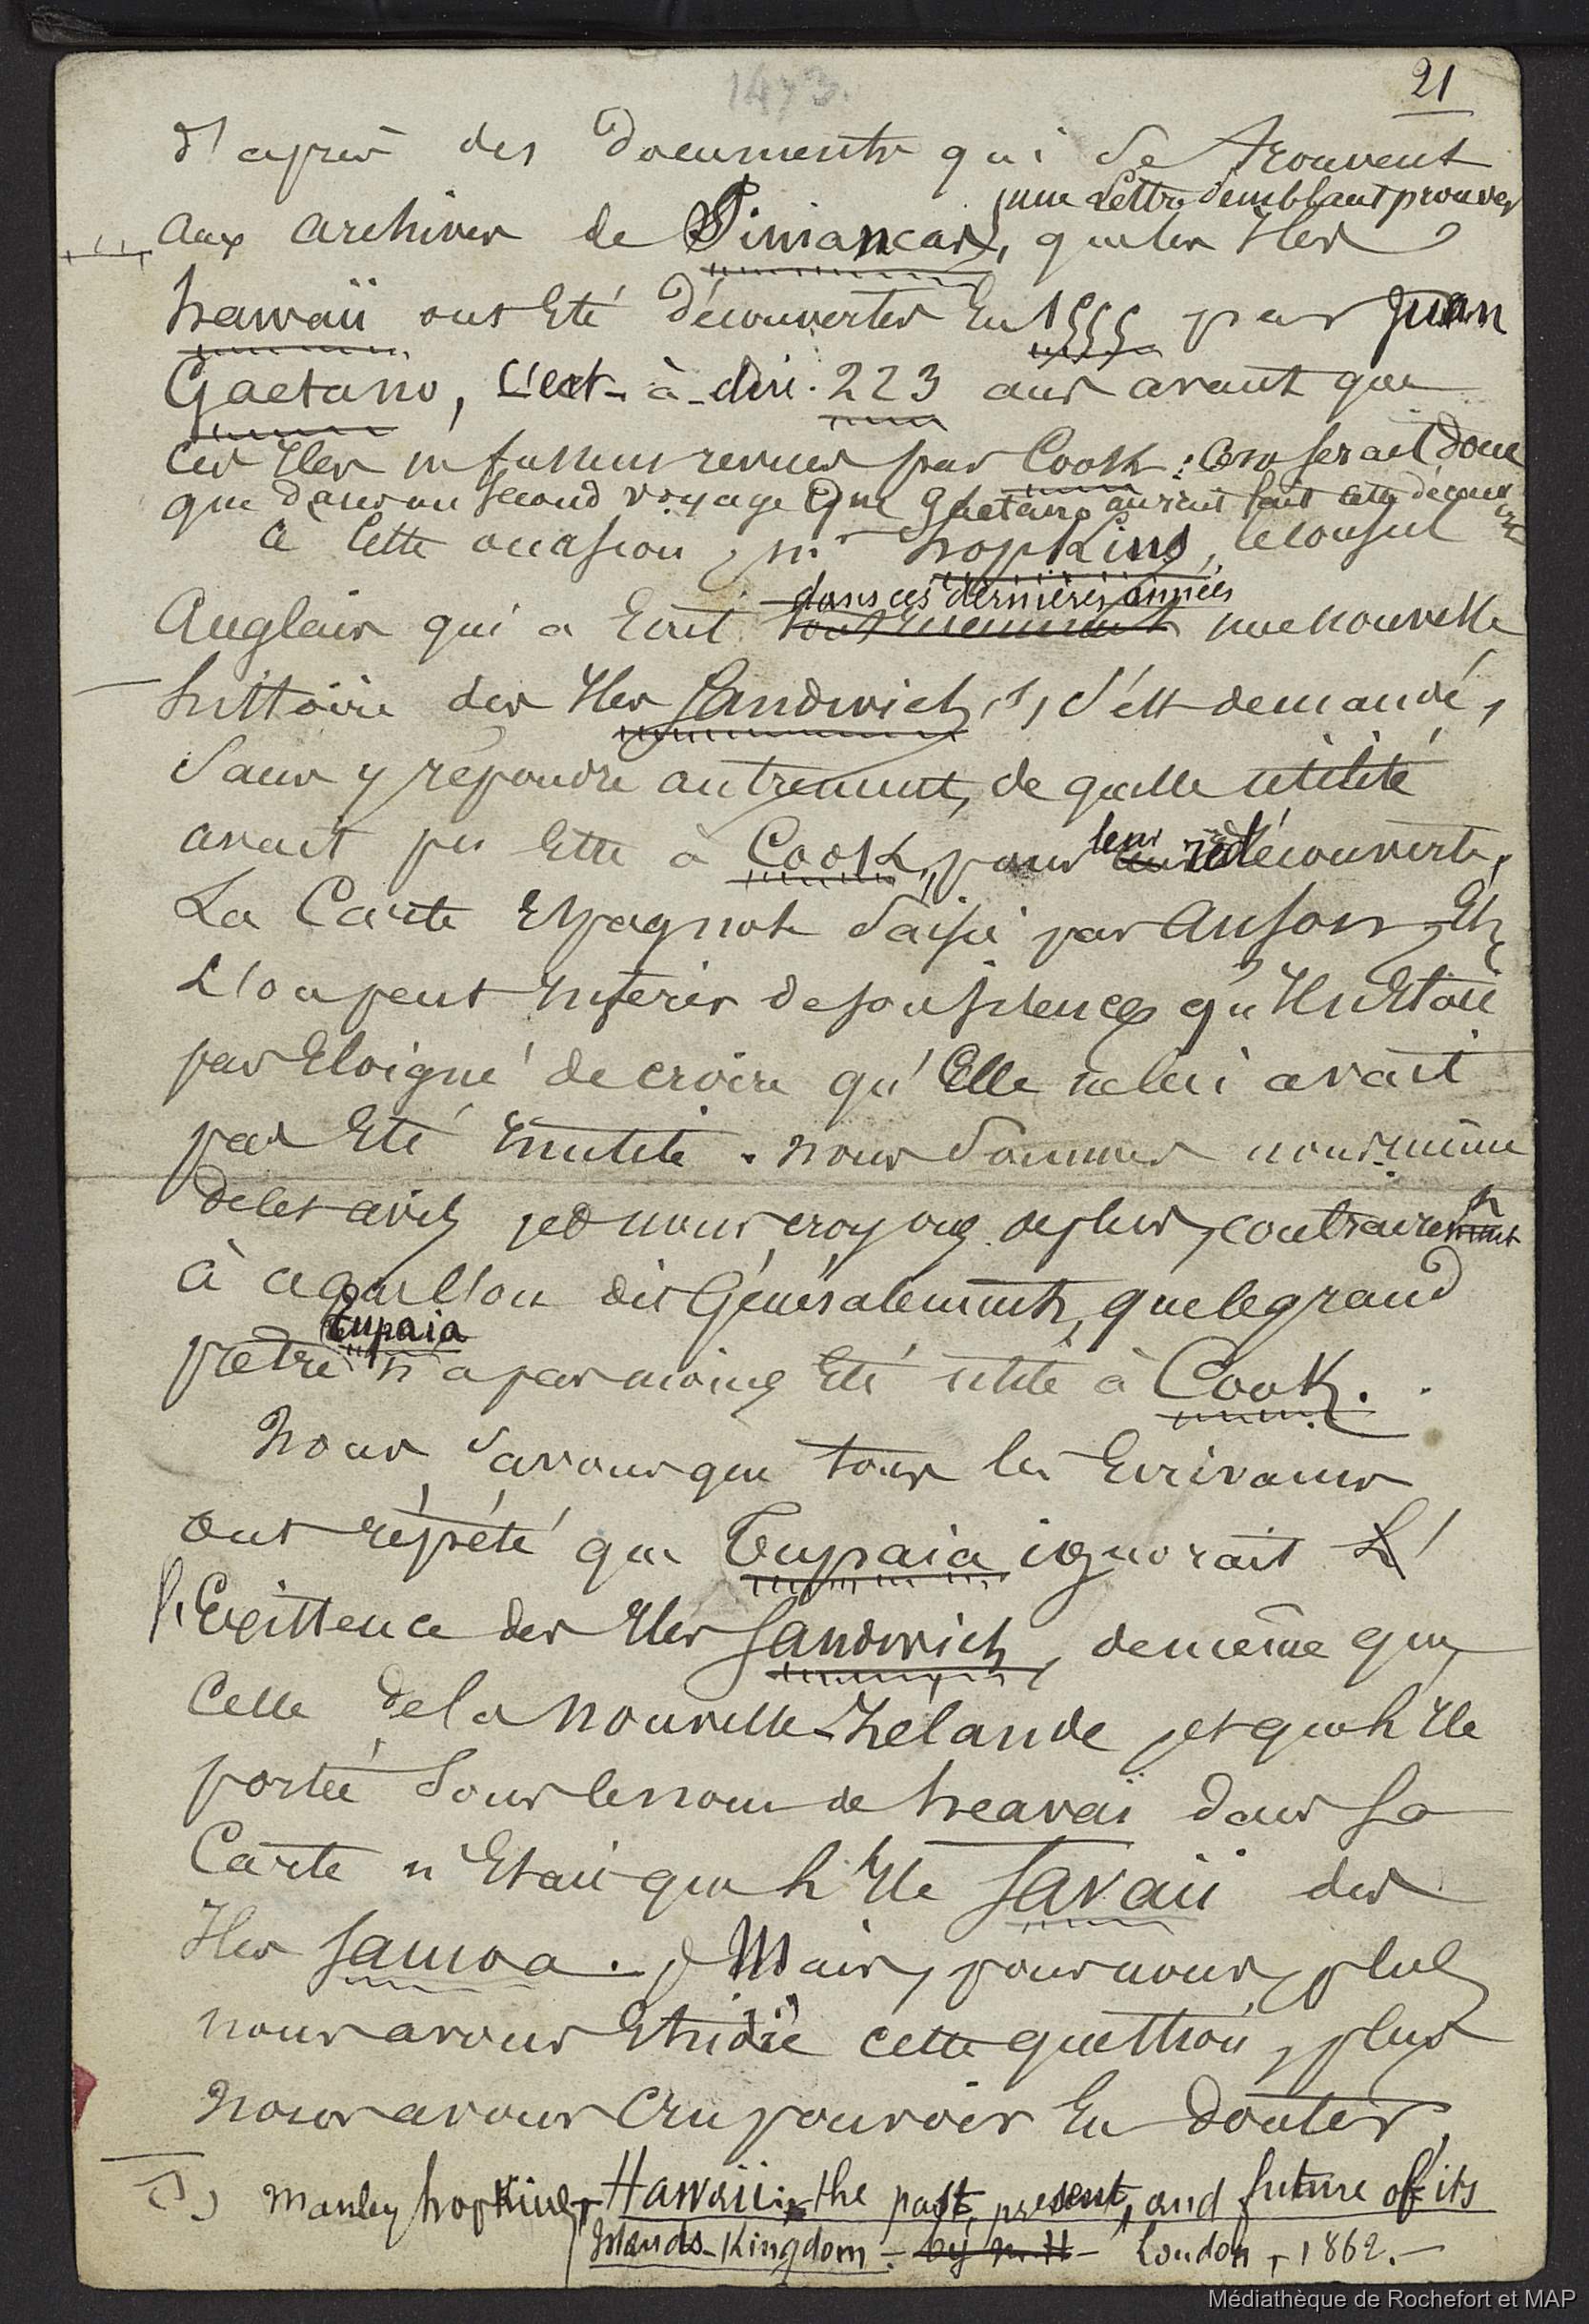 1473.
21
d'après des documents qui se trouvent
une lettre semblant prouver
aux archives de Simancas, que les Iles
hawaii ont été découvertes En 1555 par Juan
Gaetano, c'est-à-dire 223 ans avant que
ces Iles ne fussent revues par Cook : ce ne serait donc
que dans un second voyage que Gaetano aurait fait cette découverte
à cette occasion, Mr hopkins, le consul
dans ces dernières années
Anglais qui a Ecrit une nouvelle
histoire des Iles Sandwich (1), s'est demandé,
sans y répondre autrement, de quelle utilité
avait pu être à Cook, pour leur redécouverte,
La Carte Espagnole saisie par Anson Et
L'on peut inférer de son silence qu'Il n'était
pas Eloigné de croire qu'Elle ne lui avait
pas Eté inutile. nous sommes nous-même
de cet avis, et nous croyons de plus, contrairement
à ce que l'on dit Généralement, que le grand
Tupaia
prêtre n'a pas moins Eté utile à Cook.
Nous savons que tous les Ecrivains
ont répété que Tupaia ignorait L'
l'Existence des Iles Sandwich, de même que
Celle de la Nouvelle-Zelande, et que l'Ile
portée sous le nom de heavai dans sa
Carte n'Etait que l'Ile Savaii des
Iles Samoa. Mais, pour nous, plus
nous avons Etudié cette question, plus
nous avons Cru pouvoir En douter.
(1) Manley hopkins, Hawaii: the past, present, and future of its
Islands-Kingdom - by M. H - London, 1862. -
Médiathèque de Rochefort et MAP